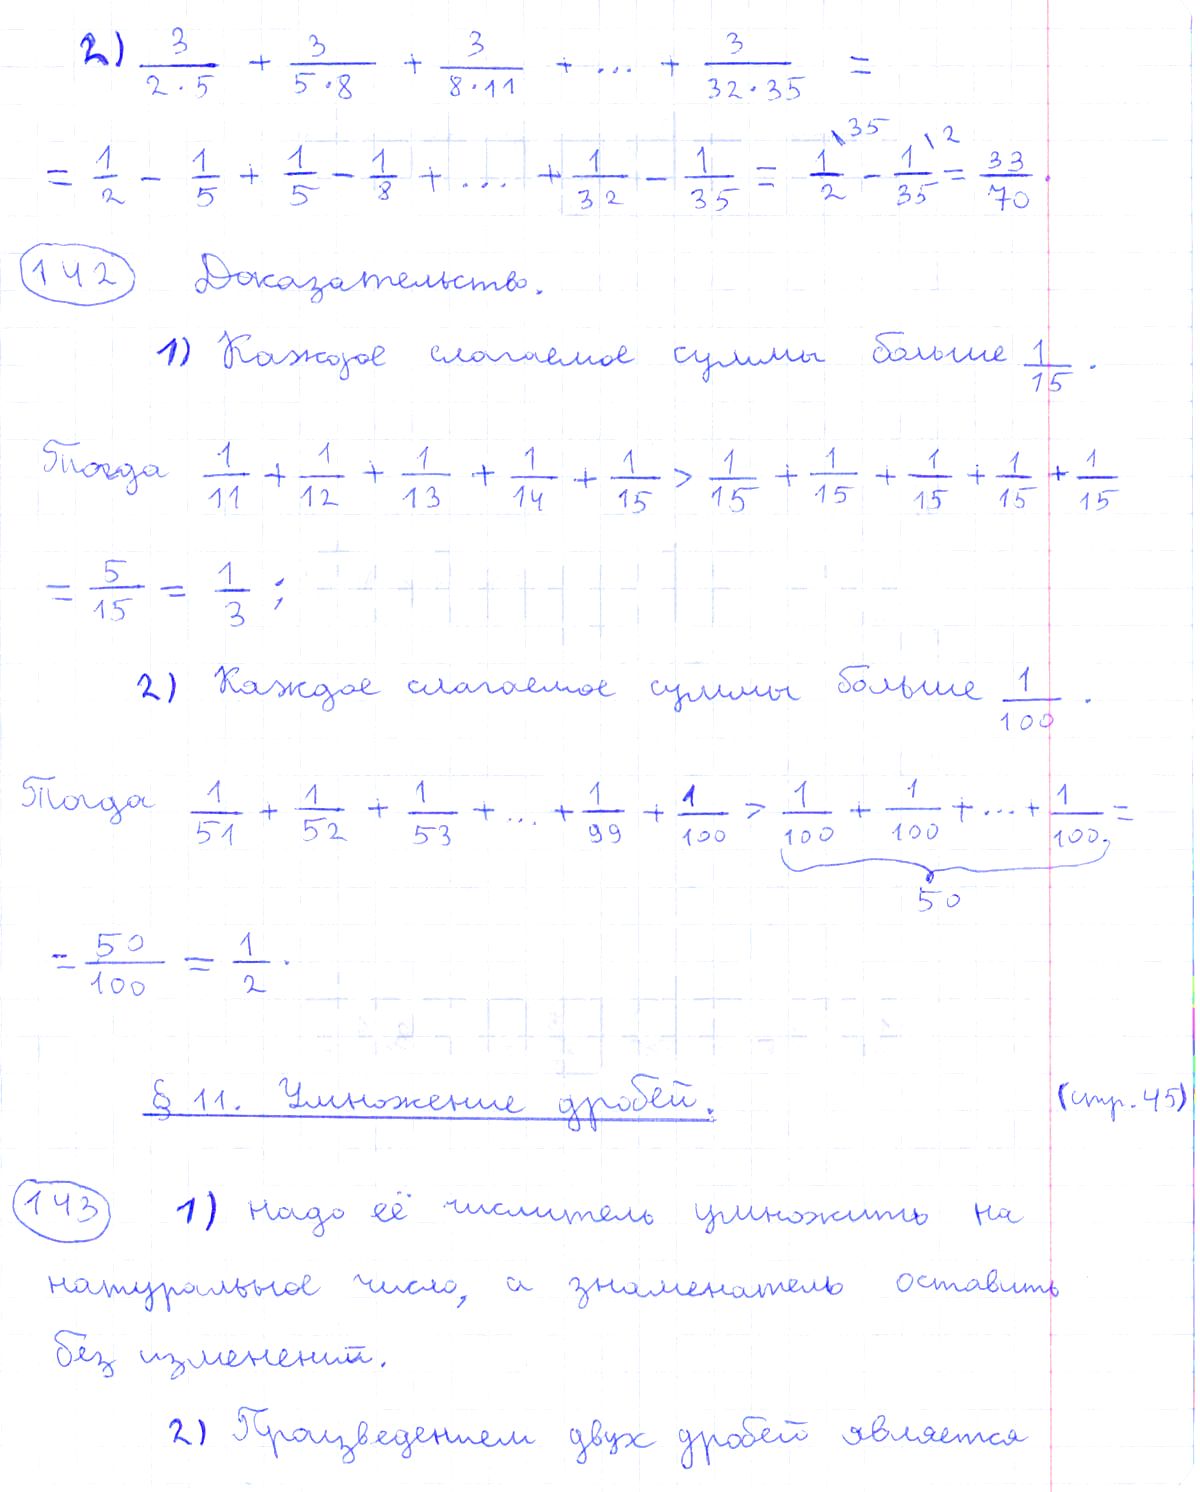 2) 3/(2·5) + 3/(5·8) + 3/(8·11) + ... + 3/(32·35) =
= 1/2 - 1/5 + 1/5 - 1/8 + ... + 1/32 - 1/35 = 1/2 \35 - 1/35 \2 = 33/70.
142 Доказательство.
1) Каждое слагаемое суммы больше 1/15.
Тогда 1/11 + 1/12 + 1/13 + 1/14 + 1/15 > 1/15 + 1/15 + 1/15 + 1/15 + 1/15
= 5/15 = 1/3 ;
2) Каждое слагаемое суммы больше 1/100.
Тогда 1/51 + 1/52 + 1/53 + ... + 1/99 + 1/100 > 1/100 + 1/100 + ... + 1/100 =
50
= 50/100 = 1/2.
§ 11. Умножение дробей. (стр. 45)
143 1) надо её числитель умножить на
натуральное число, а знаменатель оставить
без изменений.
2) Произведением двух дробей является